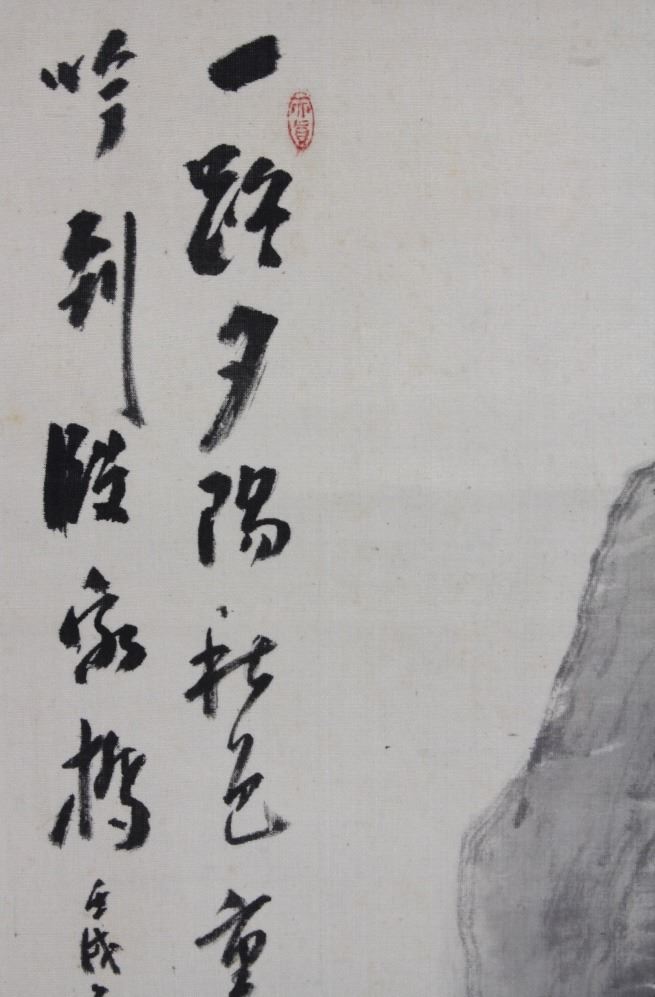 一路夕陽秋色重
吟到陸家橋 壬戌